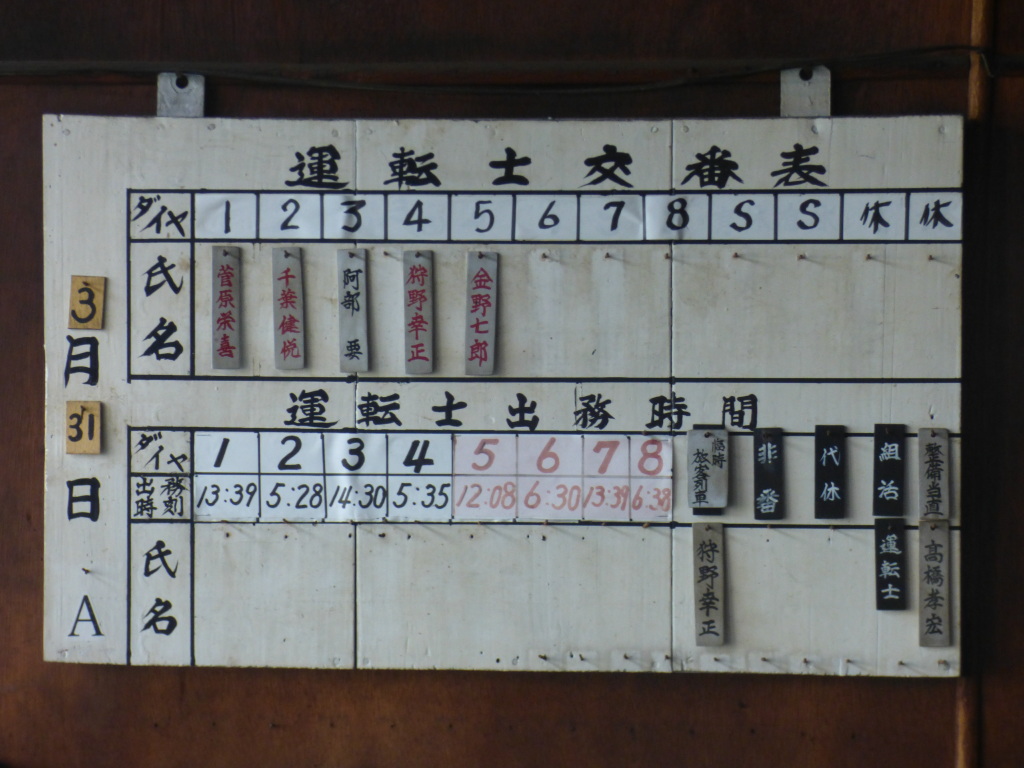 運転士交番表
ダイヤ 1 2 3 4 5 6 7 8 S S 休 休
氏名 菅原栄喜 千葉健悦 阿部要 狩野幸正 金野七郎
3月31日 A
運転士出務時間
ダイヤ 1 2 3 4 5 6 7 8 臨時旅客列車 非番 代休 組活 警備当直
出務時刻 13:39 5:28 14:30 5:35 12:08 6:30 13:39 6:38
氏名 狩野幸正 運転士 高橋孝宏